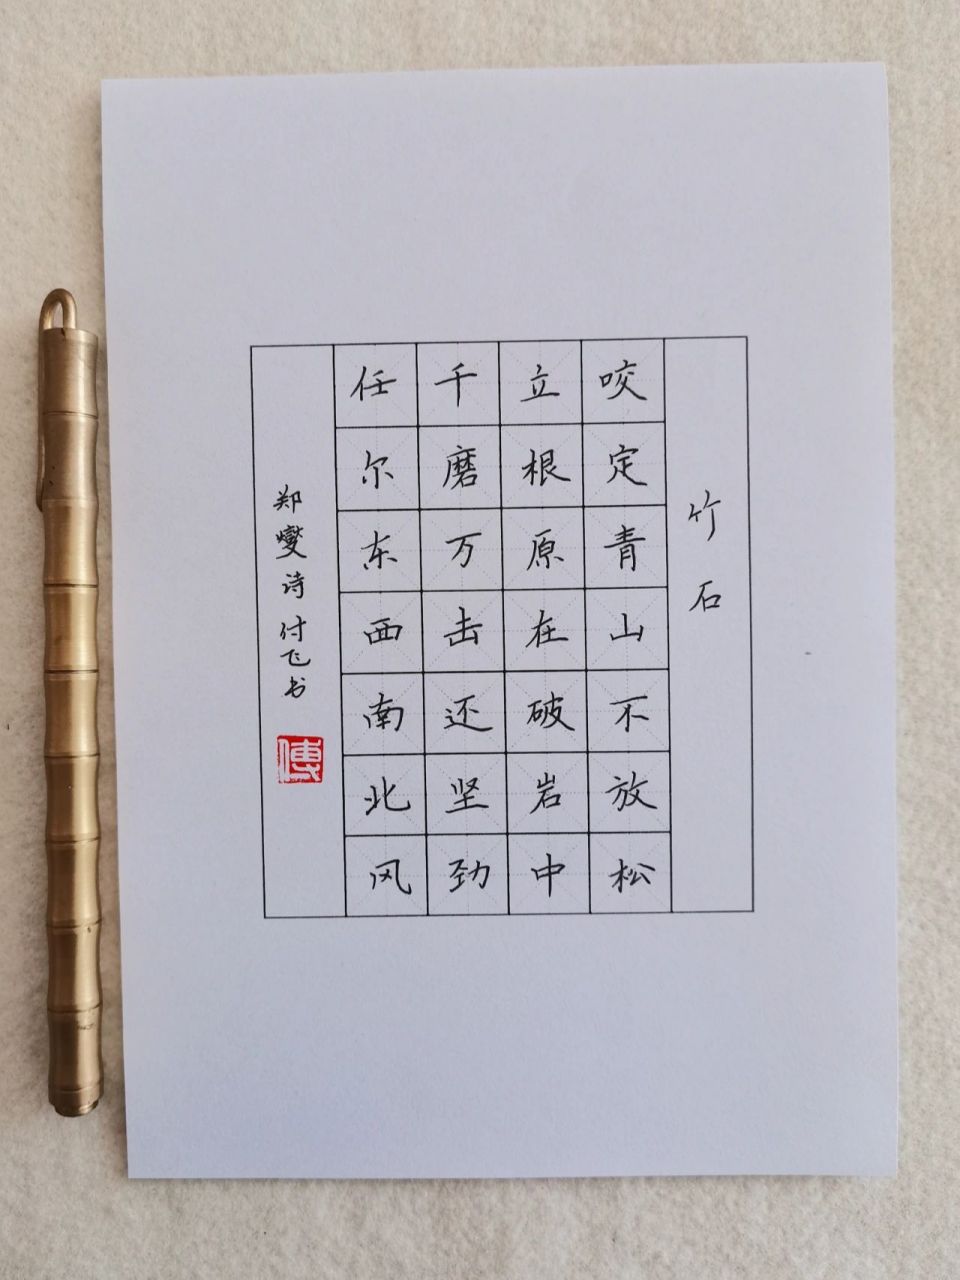 竹石
咬定青山不放松
立根原在破岩中
千磨万击还坚劲
任尔东西南北风
郑燮诗付飞书
傅